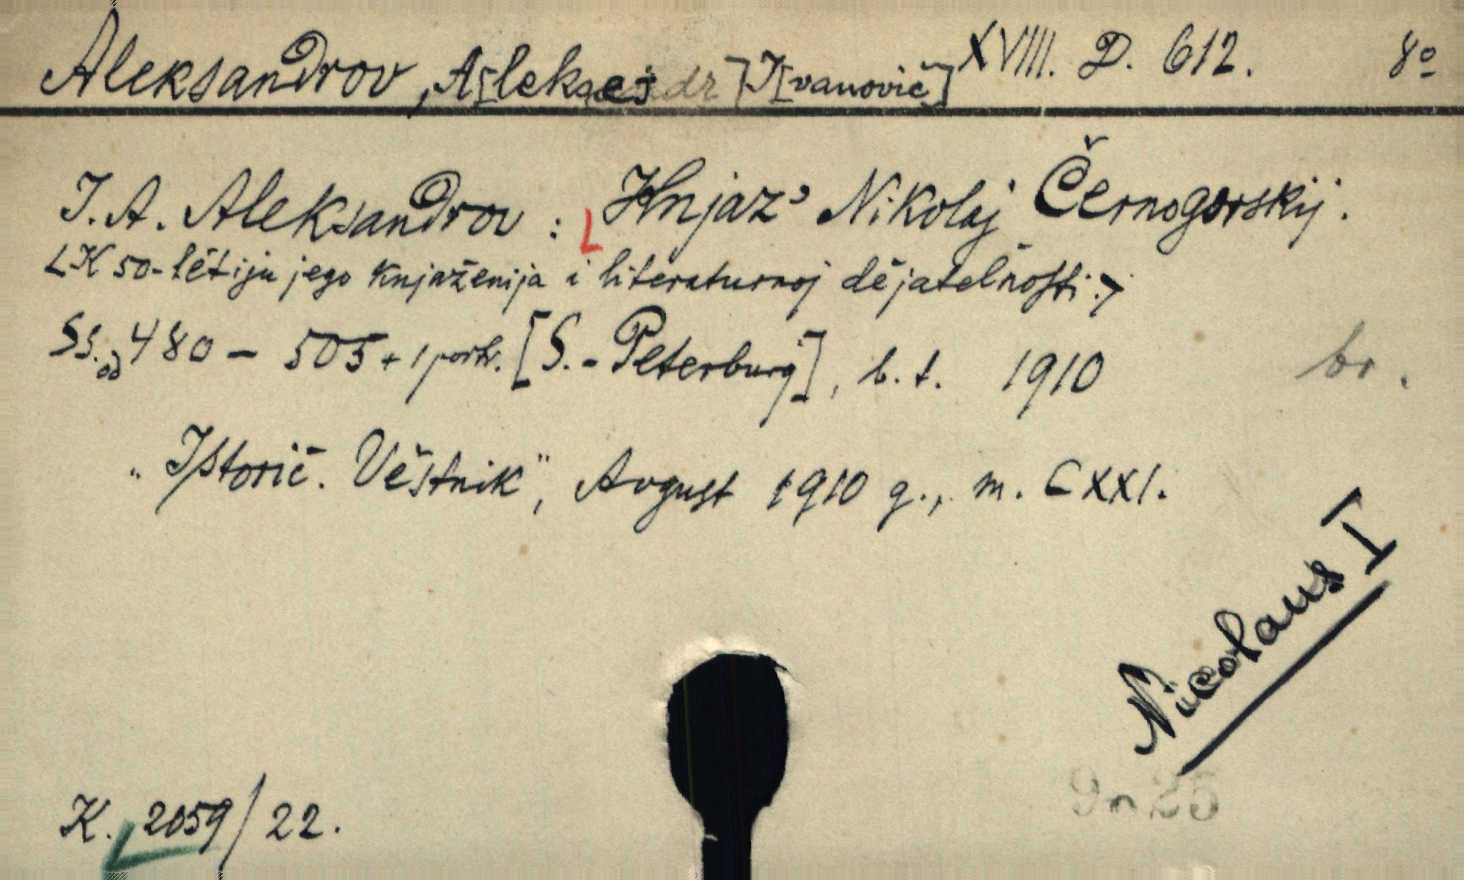 Aleksandrov, A[leksej] I[vanovič] XVIII. D. 612. 8º
I. A. Aleksandrov : Knjaz' Nikolaj Černogorskij.
<K 50-lětiju jego knjaženija i literaturnoj dějatelňosti.>
SS. od 480 – 505 + 1 portr. [S.-Peterburg], b. t. 1910 br.
„Istorič. Věstnik", Avgust 1910 g., m. CXXI.
Nicolaus I
K. 2059/22.